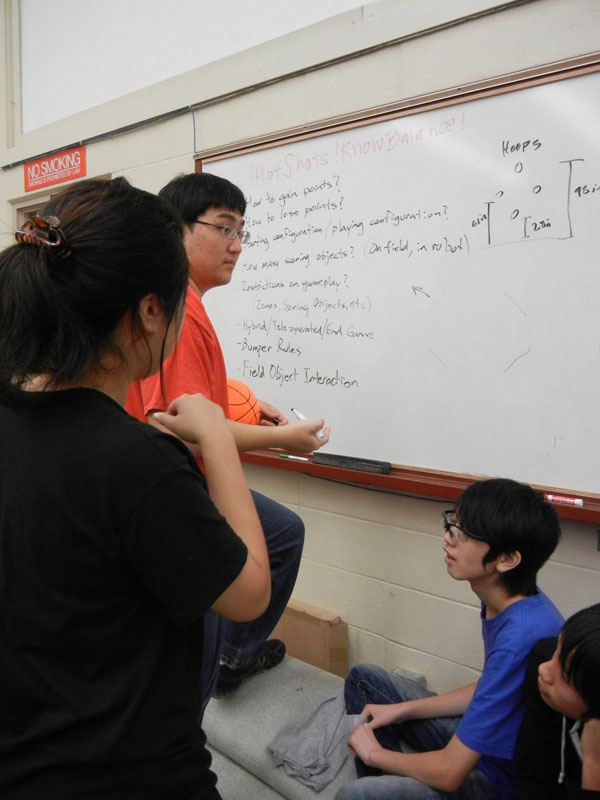 NO SMOKING
SMOKING IS PROHIBITED BY LAW
!HotShots!KnowBalance!
How to gain points?
How to lose points?
configuration/playing configuration?
How many scoring objects? (On field, in robot)
-Restrictions on gameplay?
(Zones, Scoring Objects, etc)
-Hybrid/Teleoperated/End Game
-Bumper Rules
-Field Object Interaction
HOOPS
98in
28in